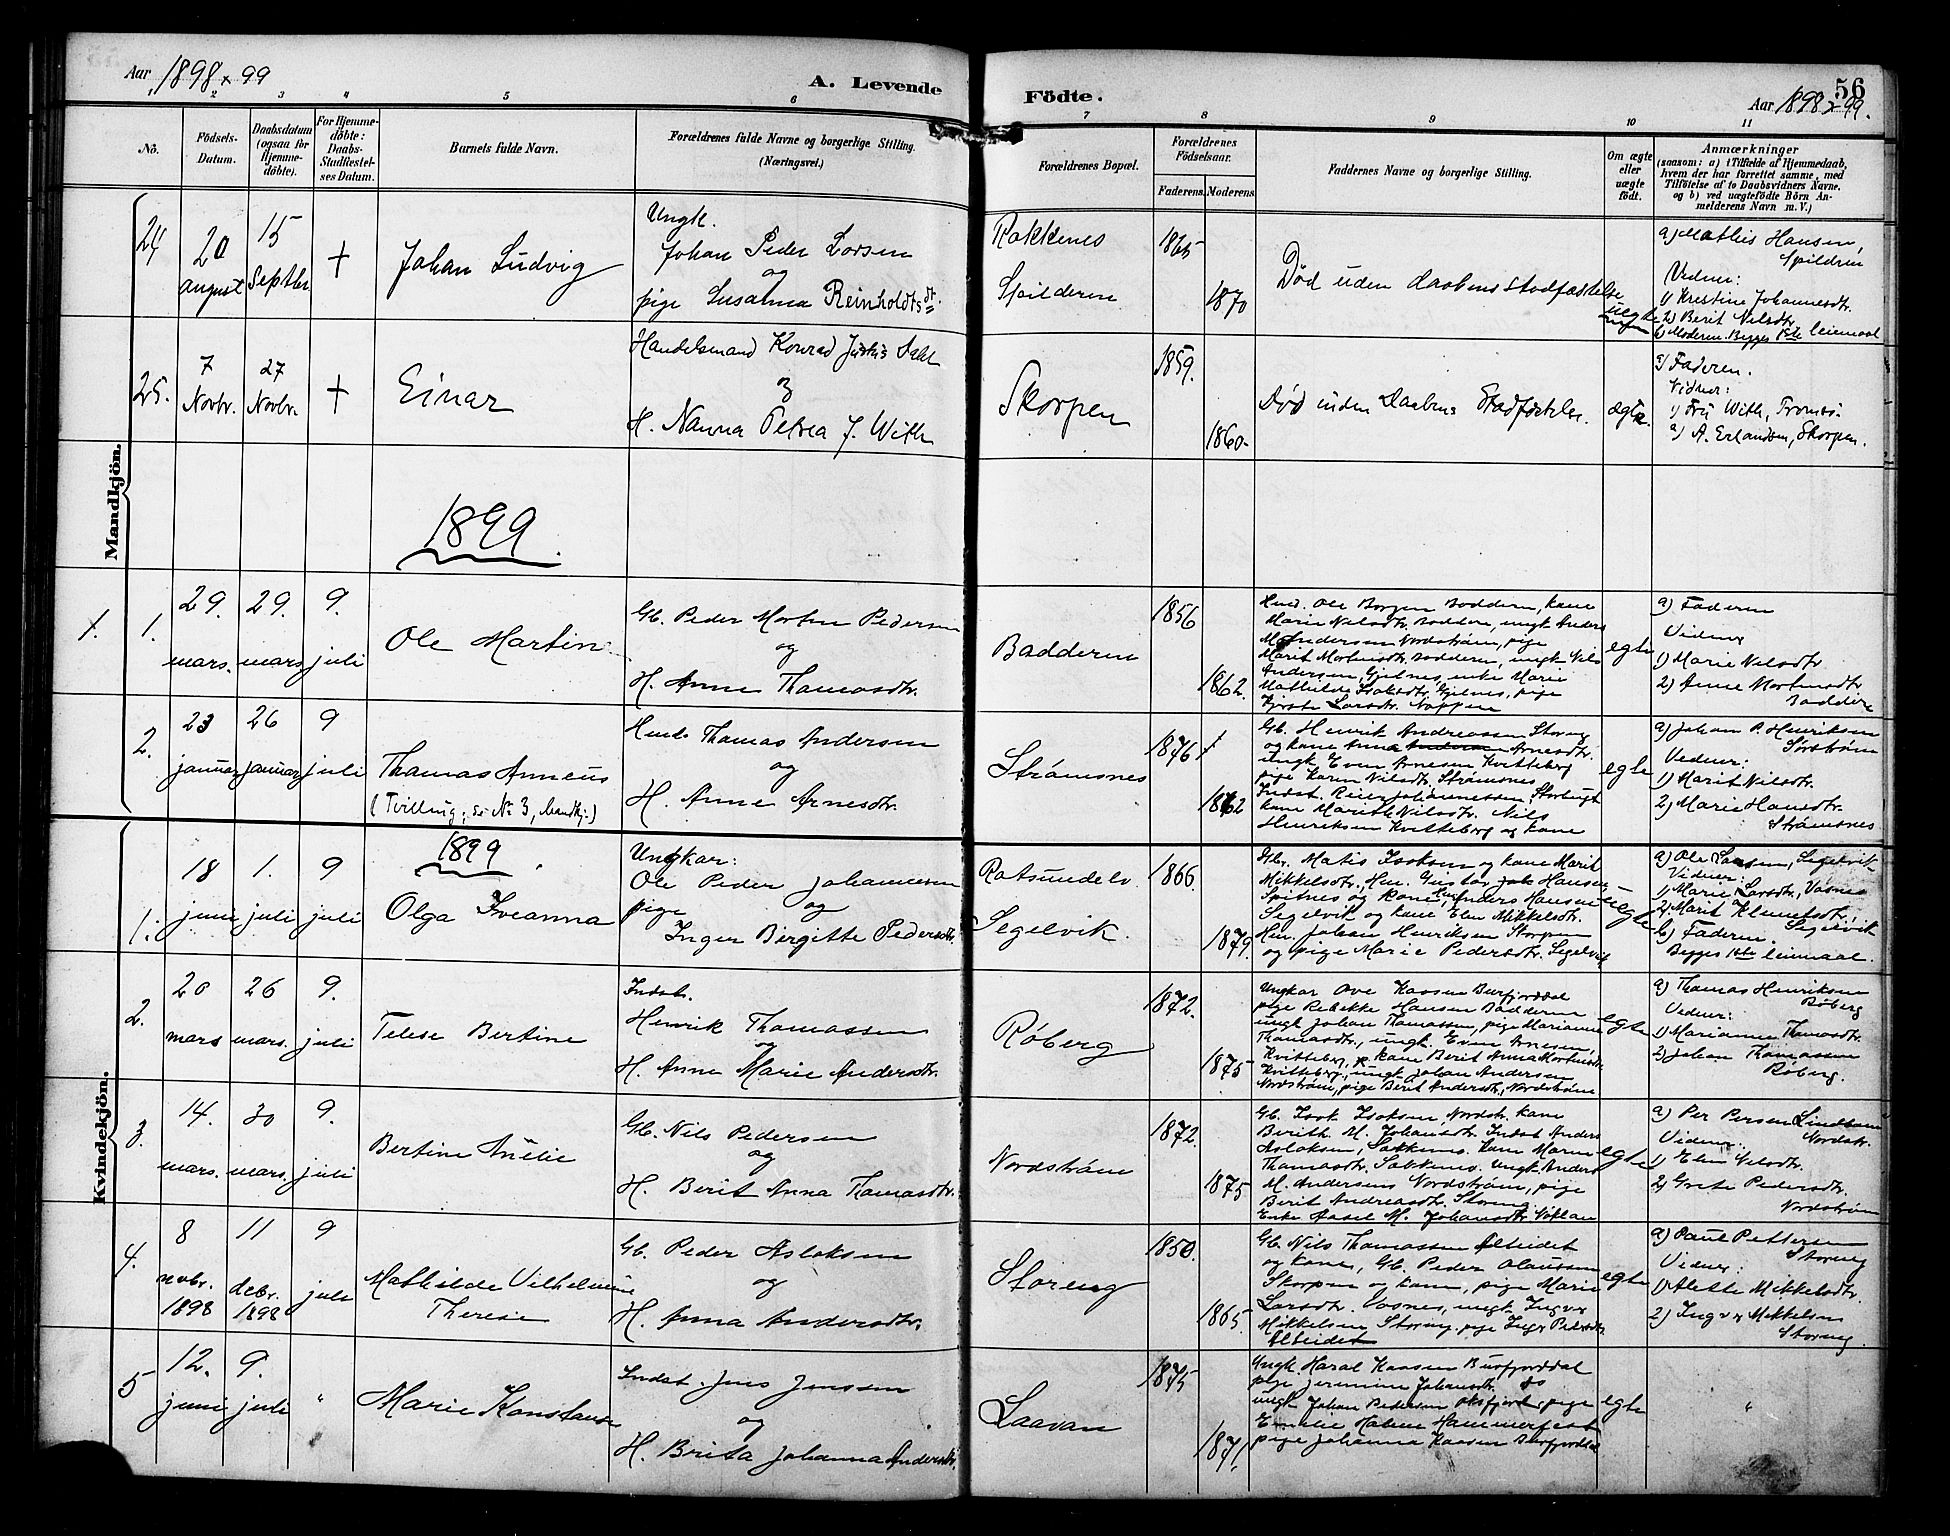 Aar 1898 x 99
A. Levende
Födte.
56
Aar 1898 x 99.
1 2 3 4 5 6 7 8 9 10 11
No.
Födsels-
Datum.
Daabsdatum
(ogsaa for
Hjemme-
döbte).
For Hjemme-
döbte:
Daabs-
Stadfæstel-
ses Datum.
Barnets fulde Navn.
Forældrenes fulde Navne og borgerlige Stilling.
(Næringsvei.)
Forældrenes Bopæl.
Forældrenes
Födselsaar.
Faderens.
Moderens.
Faddernes Navne og borgerlige Stilling.
Om ægte
eller
uægte
födt.
Anmærkninger
(saasom: a) i Tilfælde af Hjemmedaab,
hvem der har forrettet samme, med
Tilföielse af to Daabsvidners Navne.
og b) ved uægtefödte Börn An-
melderens Navn m. V.)
Mandkjön.
24
20
august
15
Septbr.
+
Johan Ludvig
Ungk.
Johan Peder Larsen
og
pige Susanna Reinholdtsdt.
Rakkenes
Spilderen
1865
1870
Død uden daabens stadfæstelse
uegte
a) Mathis Hansen,
Spildren
Vidner:
1) Kristine Johannesdtr.
2) Berit Nilsdtr.
b) Moderen. Begges 1ste leiermaal
25.
7
Novbr.
27
Novbr.
+
Einar
Handelsmand Konrad Justus Dahl
og
H. Nanna Petrea J. With
Skorpen
1859.
1860.
Død inden Daabens Stadfæstelse.
ægte.
a) Faderen.
Vidner:
1) Frü With, Tromsø
2) A. Erlandsen, Skorpen.
1899.
1.
1.
29.
mars.
29.
mars
9.
juli
Ole Martin
Gb. Peder Morten Pedersen
og
H. Anne Thomasdtr.
Badderen
1856
1862.
Hmd. Ole Borgen Badderen, kone
Marie Nilsdtr. Baddern, ungk Anders
M. Andersen Nordstrøm, pige
Marit Mortensdtr. Badderen, ungk Nils
Andersen, Gjelnes, enke Marie
Mathilde Isaksdtr, Gjelnes, pige
Kirste Larsdtr.
egte
a) Faderen
Vidner
1) Marie Nilsdtr
2) Anne Mortensdtr
Baddern
2.
23
januar
26
januar
9
juli
Thomas Anneus
(Tvilling; se No 3, Mandkj.)
Hmd. Thomas Andersen
og
H. Anne Arnesdtr.
Strømsnes
1876
1862
Gb. Henrik Andreassen Storeng
og kone Anna Arnesdtr.
ungk Even Arnesen Kvitteberg
pige Karen Nilsdtr. Strømsnes
Indst. Peder Johannessen, Storbugt
kone Marith Nilsdtr. Nils
Henriksen Kvitteberg og kone
egte
a) Johan P. Henriksen
Sørstrøm
Vidner:
1) Marit Nilsdtr.
2) Marie Hansdtr.
Strømsnes
Kvindekjön.
1899
1.
18
juni
1.
juli
9
juli
Olga Iveanna
Ungkar:
Ole Peder Johannesen
og
pige
Inger Birgitte Pedersdtr.
Rotsundelv.
Segelvik.
1866.
1879.
Gbr. Matis Isaksen og kone Marit
Mikkelsdtr., Hm. Gustav Hansen
Spitnes og kone, Anders Hansen
Segelvik og kone Elen Mikkelsdtr.
Hm. Johan Henriksen Skorpen
og pige Marie Pedersdtr. Segelvik
uegte
a) Ole Larsen, Segelvik
Vidner:
1) Marie Larsdtr, Vasnes
2) Marit Klemetsdtr,
Segelvik
b) Faderen.
Begges 1ste leiermaal.
2.
20
mars
26
mars.
9.
juli
Telese Bertine
Indst.
Henrik Thomassen
og
H. Anne Marie Andersdtr.
Røberg
1872.
1875
Ungkar Ove Kaasen Burfjorddal
pige Rebekke Hansen Badderen
ungk Johan Thomassen, pige Marianne
Thomasdtr., ungk. Even Arnesen,
Kvitteberg, kone Berit Anna Mortensdtr
Kvitteberg, ungk Johan Andersen
Nordstrøm, pige Berit Andersdtr, Nordstrøm
egte
a) Thomas Henriksen
Røberg
Vidner:
1) Marianne Thomasdtr.
2) Johan Thomassen
Røberg.
3.
14.
mars.
30
mars.
9.
juli
Bertine Amelie
Gb. Nils Pedersen
og
H. Berit Anna Thomasdtr.
Nordstrøm
1872.
1875
Gb. Isak Isaksen, Nordstr, kone
Berith M. Johansdtr. Indst Anders
Aslaksen, Sakkenes. Kone Maren
Thomasdtr. Sakkenes. Ungk Anders
M. Andersens Nordstrøm, pige
Berit Andreasdtr. Storeng
Enke Aasel M. Johansdtr
egte
a) Per Persen Lindbom
Nordstr.
Vidner:
1) Elen Nilsdtr.
2) Grete Pedersdtr.
Nordstrøm
4.
8
novbr.
1898
11
debr.
1898
9
juli
Mathilde Vilhelmine
Therese
Gb. Peder Aslaksen
og
H. Anna Andersdtr.
Storeng
1850.
1865.
Gb. Nils Thomassen Alteidet
og kone, Gb. Peder Olaussen
Skorpen og kone, pige Marie
Larsdtr. Vasnes, ungk Ingvar
Mikkelsen Storeng, pige Inger Pedersdtr
Alteidet
egte
a) Paul Pettersen
Storeng
Vidner:
1) Alette Mikkelsdtr.
2) Ingvar Mikkelsen
Storeng.
5
12.
juni
9.
juli
"
Marie Konstanse
Indst. Jens Jenssen
og
H. Brita Johanna Andersdtr.
Laavan
1875
1871
Ungk. Haral Kaasen Burfjorddal
pige Jeremine Johansdtr. do
ungk Johan Pedersen Oksfjord, pige
Emelie Halene Hammerfest
pige Johanna Kaasen Burfjorddal
egte
"